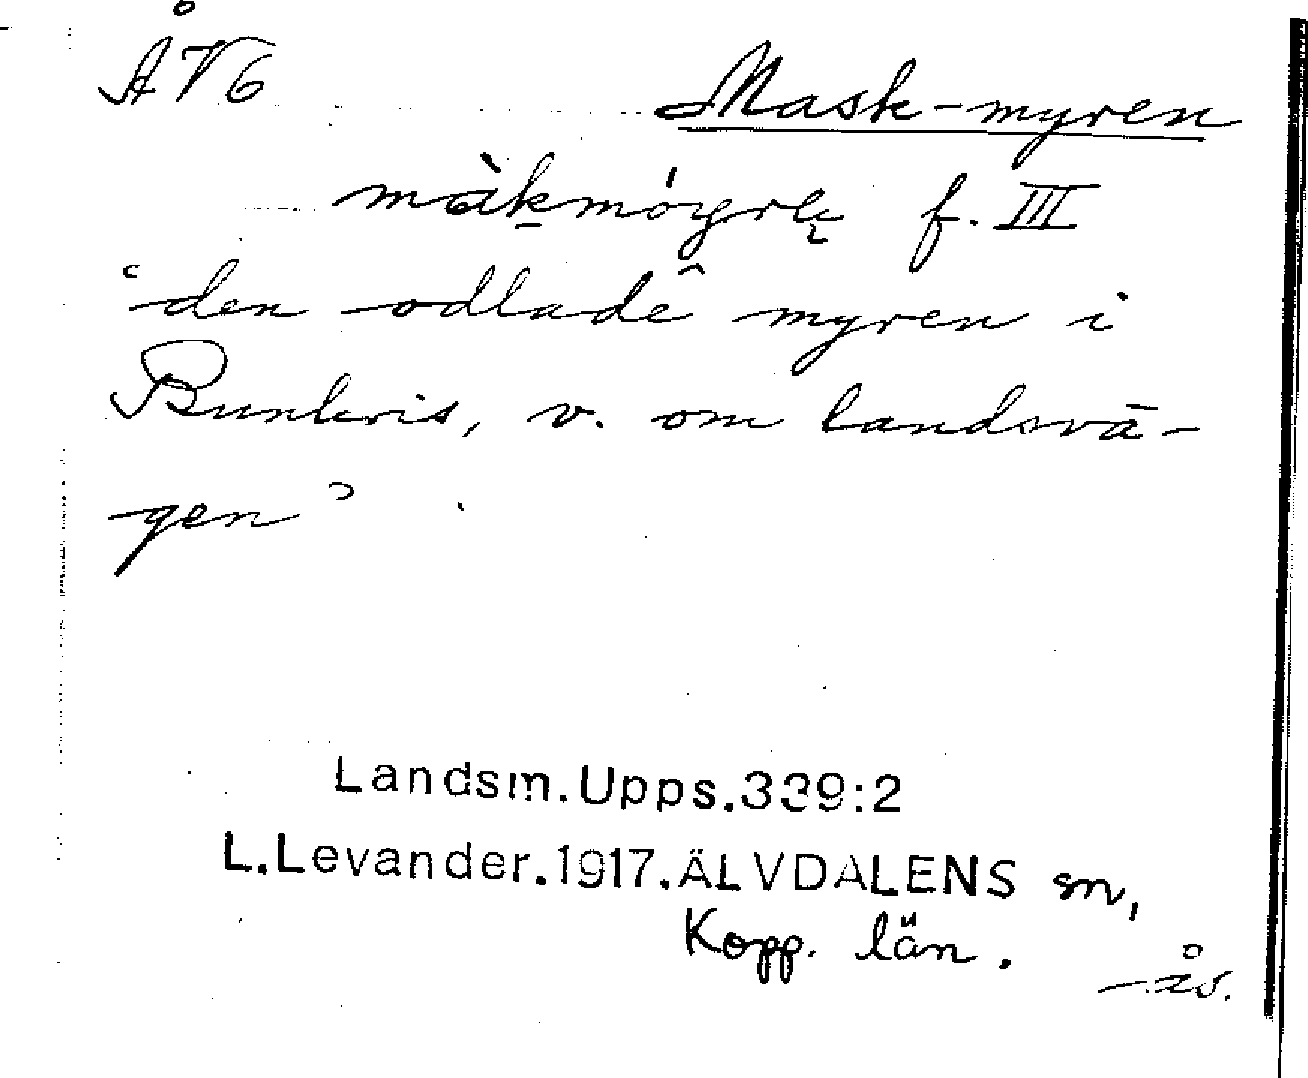 ÅV6
Mask-myren
màk̠móyrę f. III
‘den odlade myren i
Bunkris, v. om landsvä-
gen’
Landsm.Upps.339:2
L.Levander.1917.ÄLVDALENS sn,
Kopp. län.